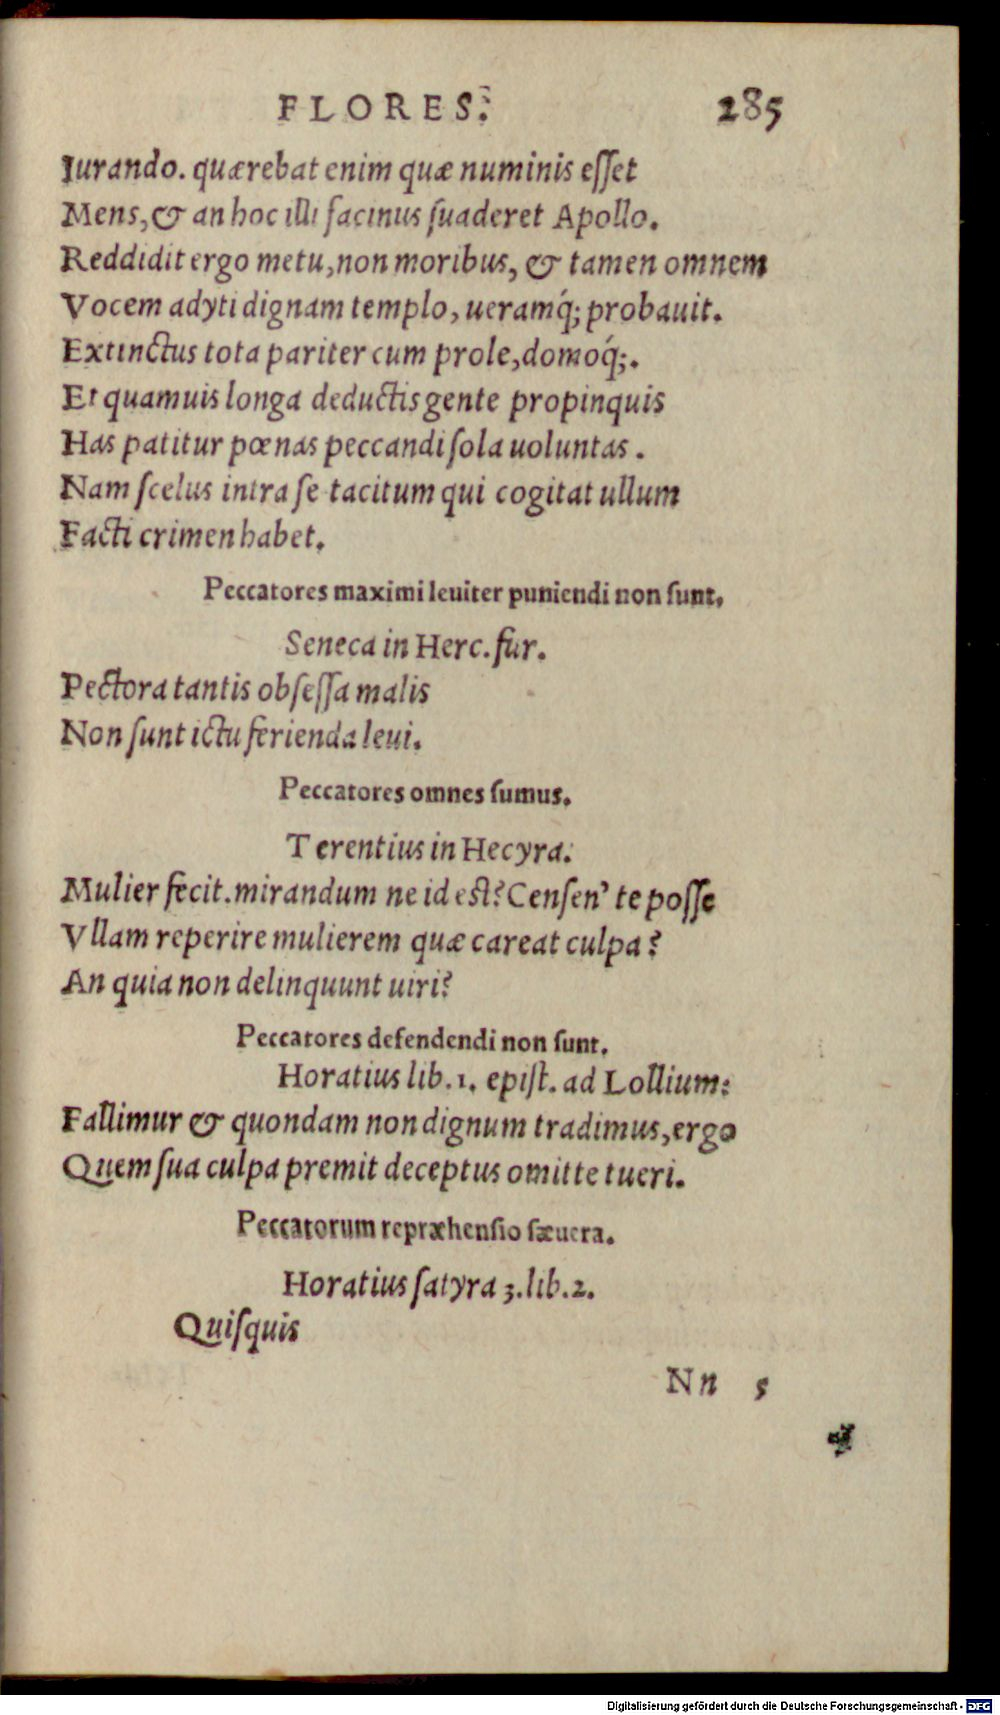 FLORES. 285
Iurando. quærebat enim quæ numinis eſſet
Mens, & an hoc illi facinus ſuaderet Apollo.
Reddidit ergo metu, non moribus, & tamen omnem
Vocem adyti dignam templo, ueramq́; probauit.
Extinctus tota pariter cum prole, domoq́;.
Et quamuis longa deductis gente propinquis
Has patitur pœnas peccandi ſola uoluntas.
Nam ſcelus intra ſe tacitum qui cogitat ullum
Facti crimen habet.
Peccatores maximi leuiter puniendi non ſunt.
Seneca in Herc. fur.
Pectora tantis obſeſſa malis
Non ſunt ictu ferienda leui.
Peccatores omnes ſumus.
Terentius in Hecyra.
Mulier fecit. mirandum ne id eſt? Cenſen' te poſſe
Vllam reperire mulierem quæ careat culpa?
An quia non delinquunt uiri?
Peccatores defendendi non ſunt.
Horatius lib. 1. epiſt. ad Lollium:
Fallimur & quondam non dignum tradimus, ergo
Quem ſua culpa premit deceptus omitte tueri.
Peccatorum repræhenſio ſæuera.
Horatius ſatyra 3. lib. 2.
Quiſquis
Nn 5
Digitalisierung gefördert durch die Deutsche Forschungsgemeinschaft - DFG